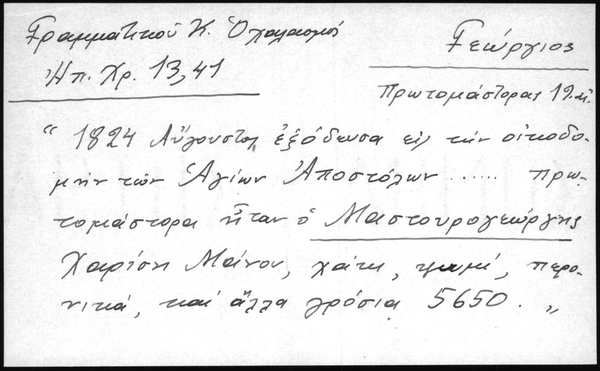 Γραμματικοῦ Κ. Ὁ χαλασμός
Ἠπ. Χρ. 13,41
Γεώργιος
Πρωτομάστορας 19.αἰ.
" 1824 Αὔγουστος ἐξόδευσα εἰς τὴν οἰκοδο-
μὴν τῶν Ἁγίων Ἀποστόλων ...... Πρω-
τομάστορα ἦταν ὁ Μαστουρογεώργης
Χαρίση Μάνου, , ψωμί, περο-
νικά, καὶ ἄλλα γρόσια 5650. "